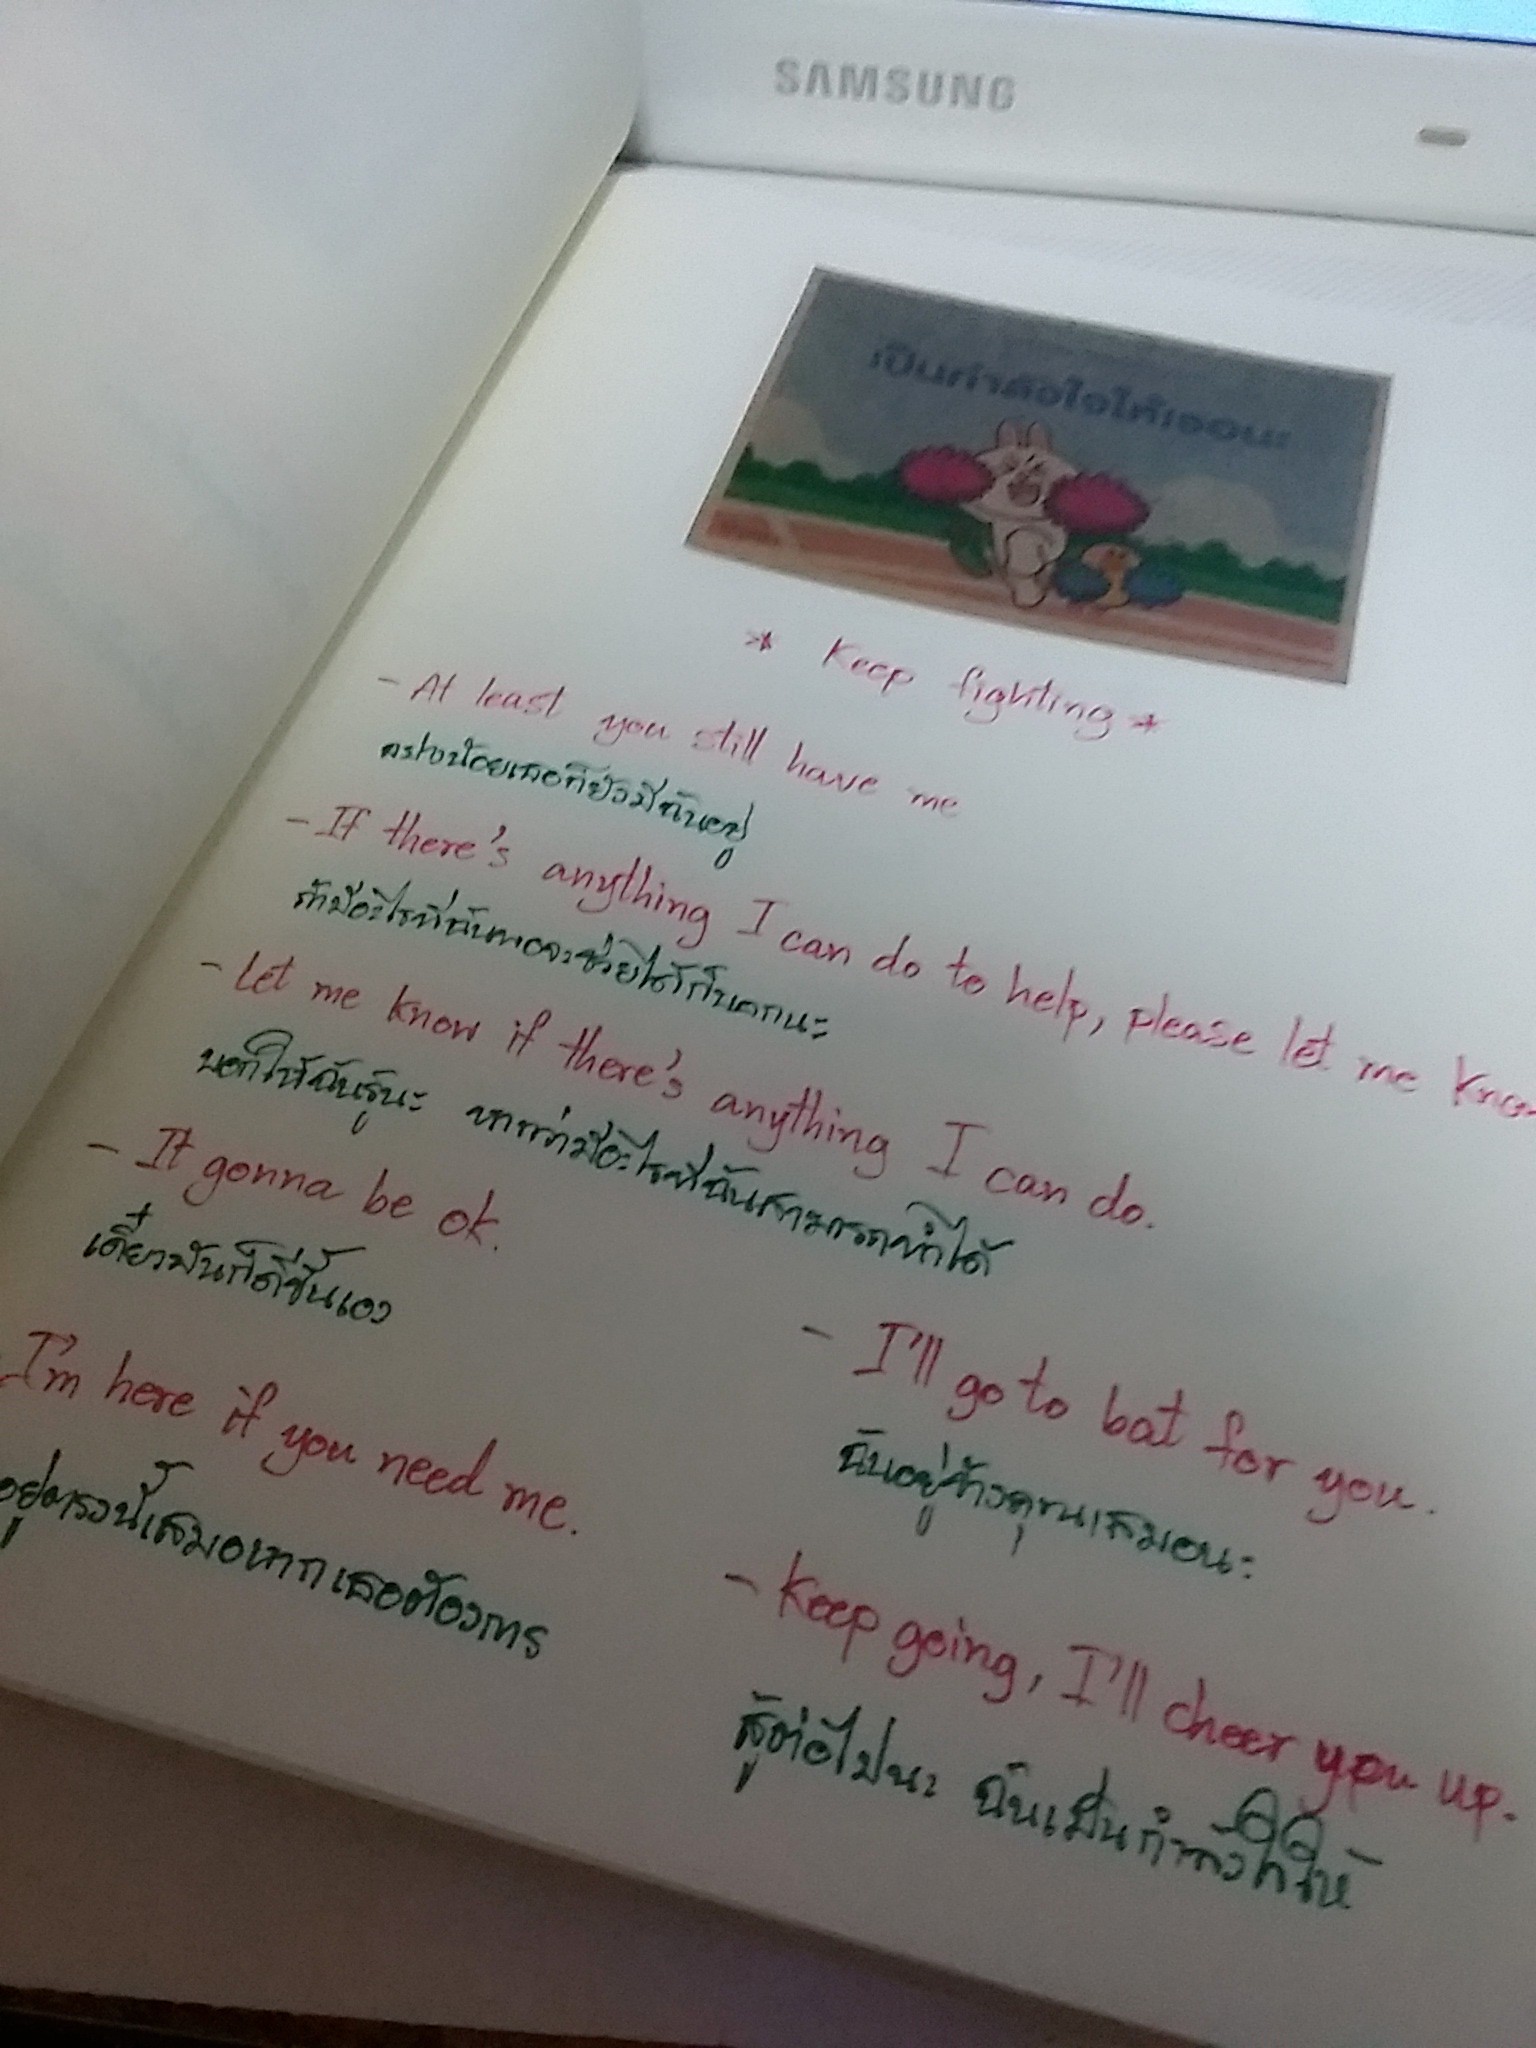 SAMSUNG
เป็นกำลังใจให้เธอนะ
* Keep fighting *
- At least you still have me
อย่างน้อยเธอก็ยังมีฉันอยู่
- If there's anything I can do to help, please let me kno
ถ้ามีอะไรที่ฉันพอจะช่วยได้ก็บอกนะ
- Let me know if there's anything I can do.
บอกให้ฉันรู้นะ หากว่ามีอะไรที่ฉันสามารถทำได้
- It gonna be ok.
เดี๋ยวมันก็ดีขึ้นเอง
I'm here if you need me.
อยู่ตรงนี้เสมอหากเธอต้องการ
- I'll go to bat for you.
ฉันอยู่ข้างคุณเสมอนะ
- Keep going, I'll cheer you up.
สู้ต่อไปนะ ฉันเป็นกำลังใจให้